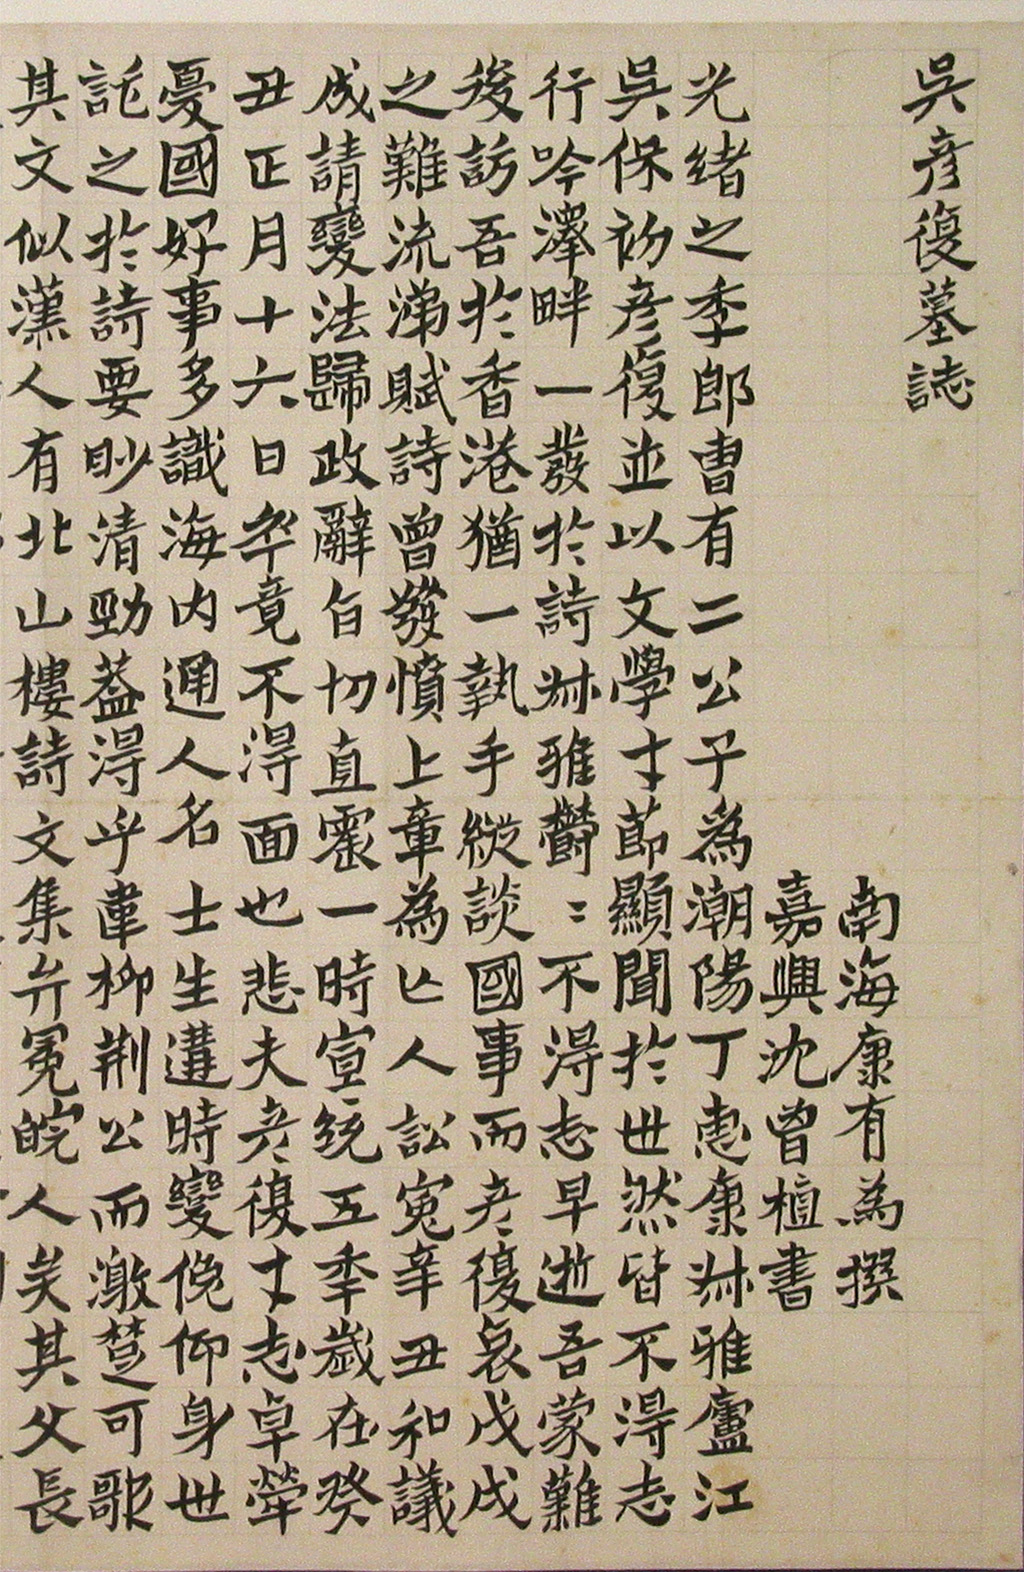 吳彦復墓誌
南海康有為撰
嘉興沈曾植書
光緒之季郎曹有二公子為潮陽丁惠康叔雅廬江
吳保初彦復並以文學才節顯聞於世然皆不淂志
行吟澤畔一發於詩叔雅鬱〻不淂志早逝吾蒙難
後訪吾於香港猶一執手縱談國事而彦復哀戊戌
之難流涕賦詩曾發憤上章為亡人訟寃辛丑和議
成請變法歸政辭旨切直震一時宣統五秊歲在癸
丑正月十六日卒竟不淂面也悲夫彦復才志卓犖
憂國好事多識海内通人名士生遘時變俛仰身世
託之於詩要眇清勁葢淂乎韋柳荆公而激楚可歌
其文似漢人有北山樓詩文集弁冕皖人矣其父長